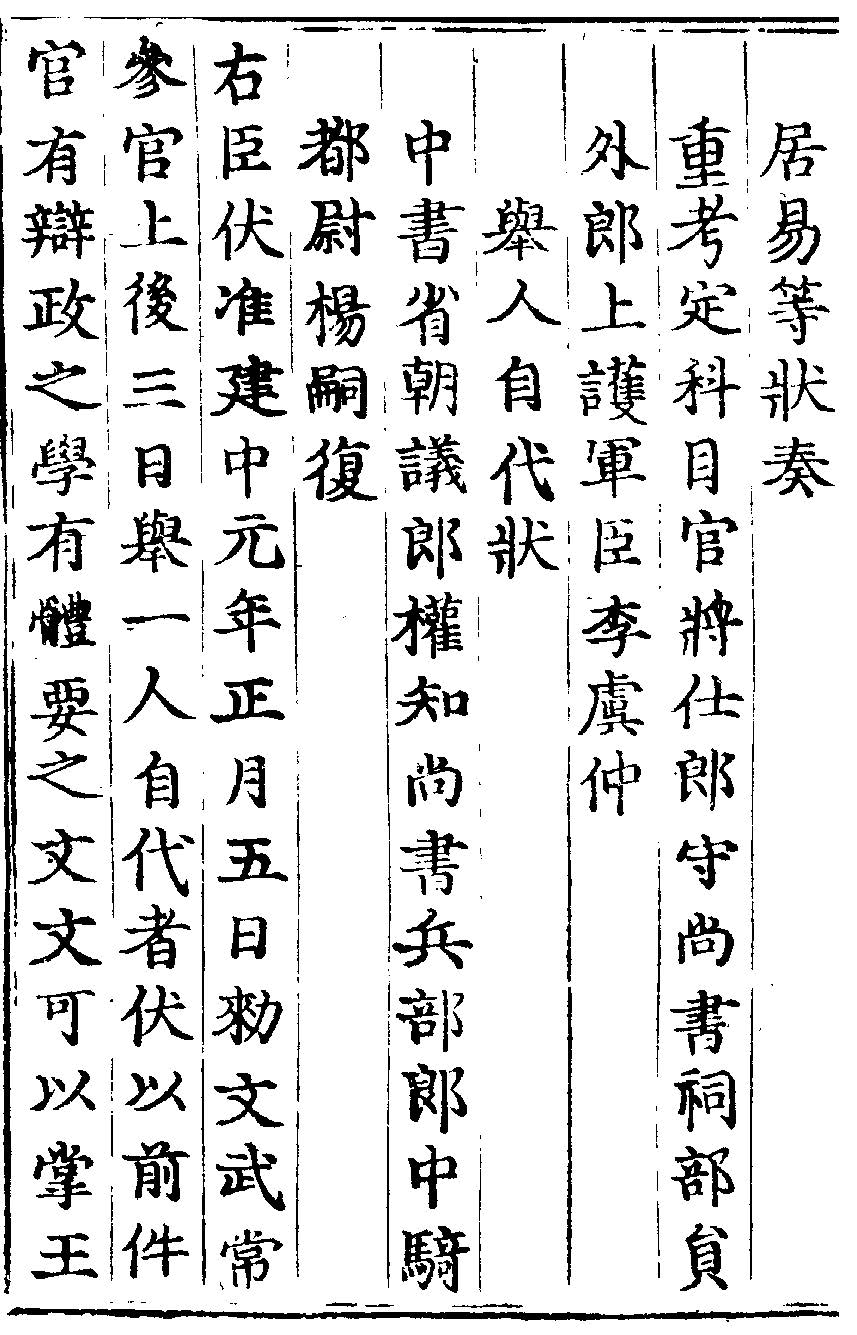 居易等狀奏
重考定科目官將仕郎守尚書祠部貟
外郎上護軍臣李虞仲
舉人自代狀
中書省朝議郎權知尚書兵部郎中騎
都尉楊嗣復
右臣伏准建中元年正月五日勑文武常
參官上後三日舉一人自代者伏以前件
官有辯政之學有體要之文文可以掌王